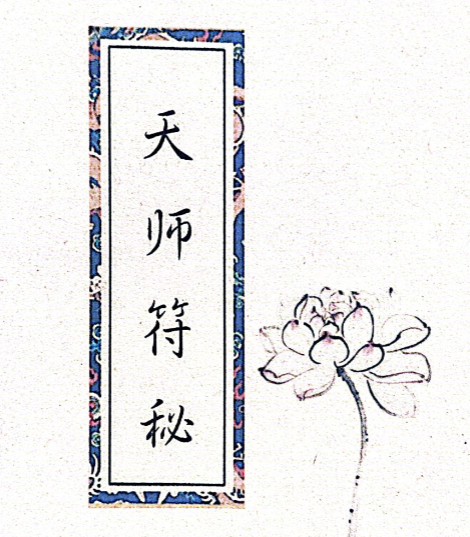 天师符秘